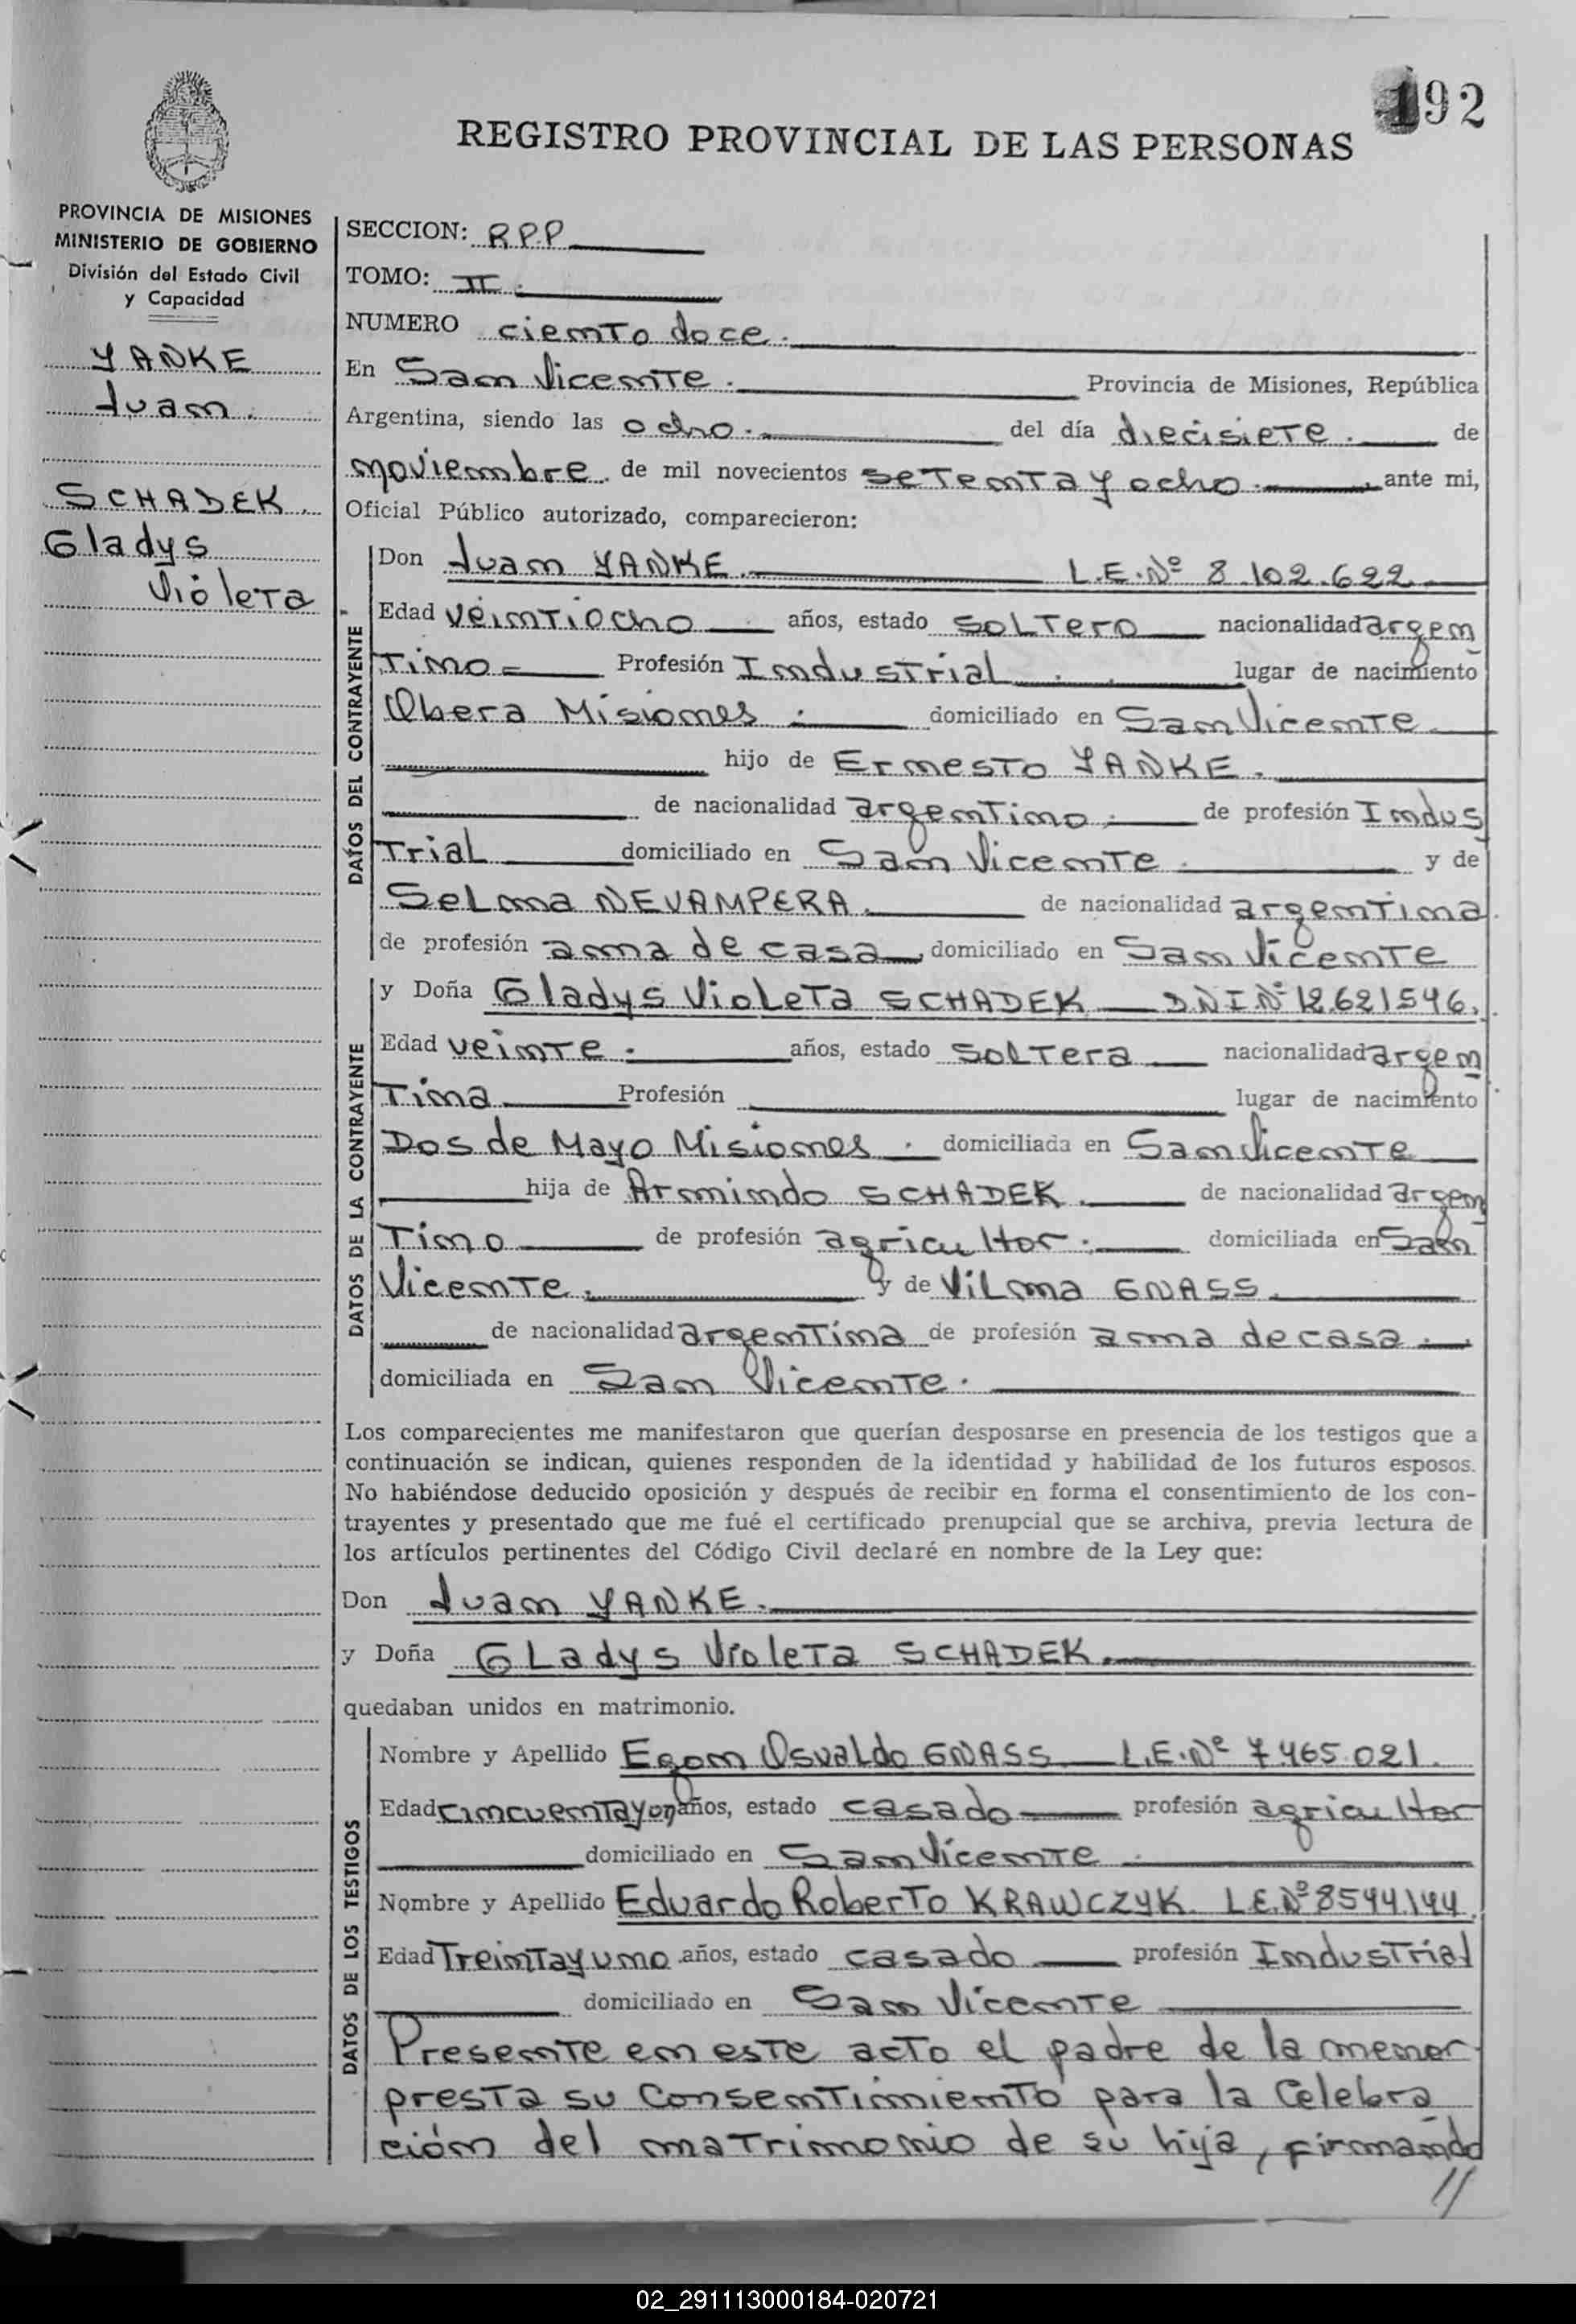 192
REGISTRO PROVINCIAL DE LAS PERSONAS
PROVINCIA DE MISIONES
MINISTERIO DE GOBIERNO
División del Estado Civil
y Capacidad
YANKE
Juan.
SCHADEK.
Gladys
Violeta
SECCION: RPP
TOMO: II.
NUMERO ciento doce.
En San Vicente. Provincia de Misiones, República
Argentina, siendo las ocho. del día diecisiete. de
noviembre. de mil novecientos setenta y ocho. ante mi,
Oficial Público autorizado, comparecieron:
DATOS DEL CONTRAYENTE
Don Juan YANKE. L.E.Nº 8.102.622
Edad veintiocho años, estado soltero nacionalidad argen
tino= Profesión Industrial. lugar de nacimiento
Obera Misiones. domiciliado en San Vicente
hijo de Ernesto YANKE.
de nacionalidad argentino. de profesión Indus
trial domiciliado en San Vicente. y de
Selma NEVAMPERA. de nacionalidad argentina.
de profesión ama de casa domiciliado en San Vicente
DATOS DE LA CONTRAYENTE
y Doña Gladys Violeta SCHADEK DNI Nº 12.621546.
Edad veinte. años, estado soltera nacionalidad argen
tina Profesión lugar de nacimiento
Dos de Mayo Misiones. domiciliada en San Vicente
hija de Armindo SCHADEK. de nacionalidad argen
tino de profesión agricultor. domiciliada en San
Vicente. y de Vilma GNASS.
de nacionalidad argentina de profesión ama de casa.
domiciliada en San Vicente.
Los comparecientes me manifestaron que querían desposarse en presencia de los testigos que a
continuación se indican, quienes responden de la identidad y habilidad de los futuros esposos.
No habiéndose deducido oposición y después de recibir en forma el consentimiento de los con-
trayentes y presentado que me fué el certificado prenupcial que se archiva, previa lectura de
los artículos pertinentes del Código Civil declaré en nombre de la Ley que:
Don Juan YANKE.
y Doña Gladys Violeta SCHADEK.
quedaban unidos en matrimonio.
DATOS DE LOS TESTIGOS
Nombre y Apellido Egon Osvaldo GNASS L.E.Nº 7.465.021.
Edad cincuenta y años, estado casado profesión agricultor
domiciliado en San Vicente.
Nombre y Apellido Eduardo Roberto KRAWCZYK. L.E.Nº 8544.144.
Edad Treinta y uno años, estado casado profesión Industrial
domiciliado en San Vicente
Presente en este acto el padre de la menor
presta su consentimiento para la celebra
ción del matrimonio de su hija, firmando
//
02_291113000184-020721